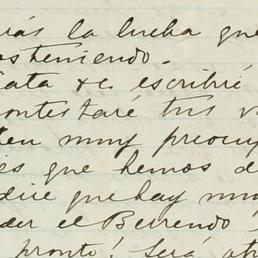 más la lucha que
osteniendo.
ata te escribiré
ontestaré tus
ten muy preocup
es que hemos d
dice que hay mu
der el Berrendo
pronto! Será